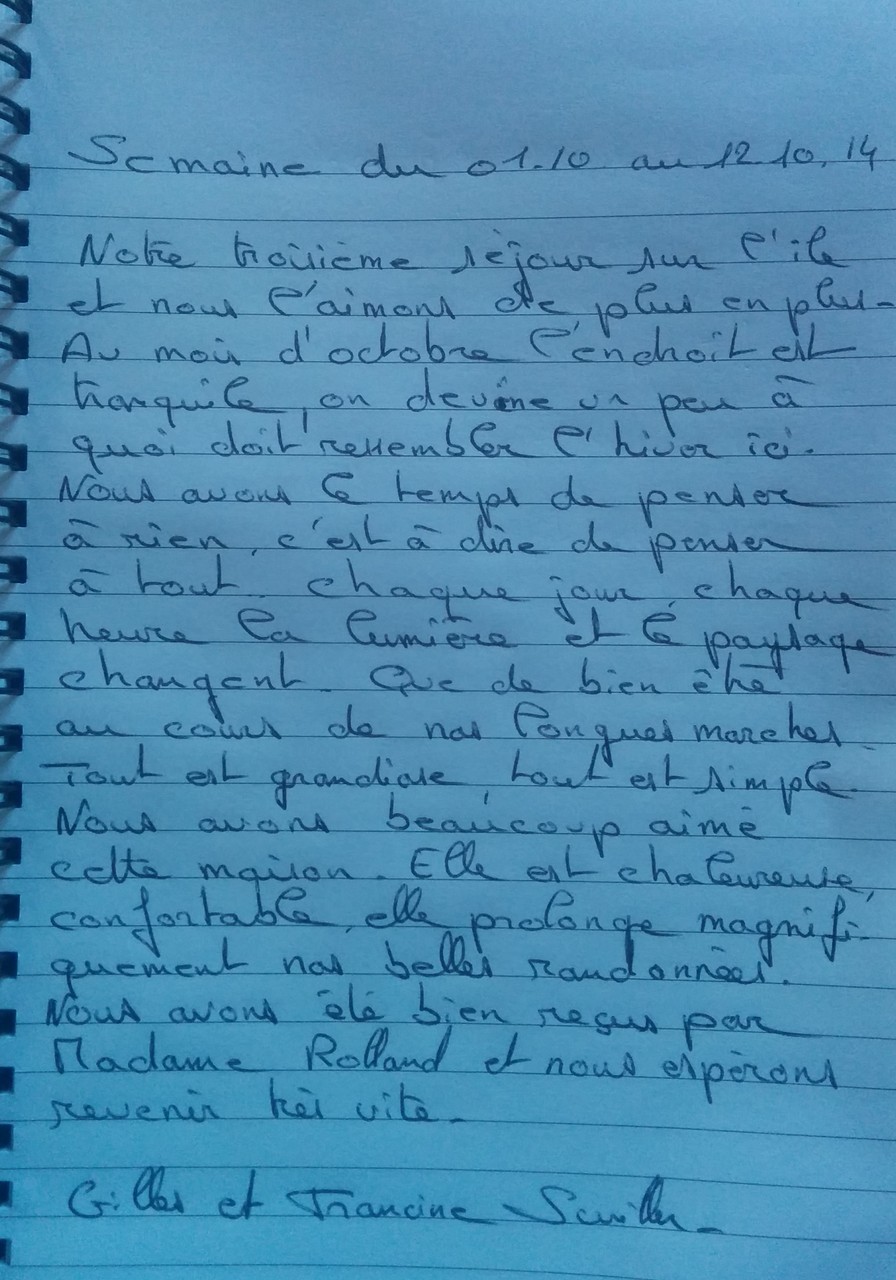 Semaine du 01.10 au 12.10.14
Notre troisième séjour sur l'île
et nous l'aimons de plus en plus.
Au mois d'octobre l'endroit est
tranquile, on devine un peu à
quoi doit ressembler l'hiver ici.
Nous avons le temps de penser
à rien, c'est à dire de penser
à tout. chaque jour, chaque
heure la lumière et le paysage
changent. Que de bien être
au cours de nos longues marches.
Tout est grandiose, tout est simple.
Nous avons beaucoup aimé
cette maison. Elle est chaleureuse,
confortable, elle prolonge magnifi-
quement nos belles randonnées.
Nous avons été bien reçus par
Madame Rolland et nous espérons
revenir très vite.
Gilles et Francine